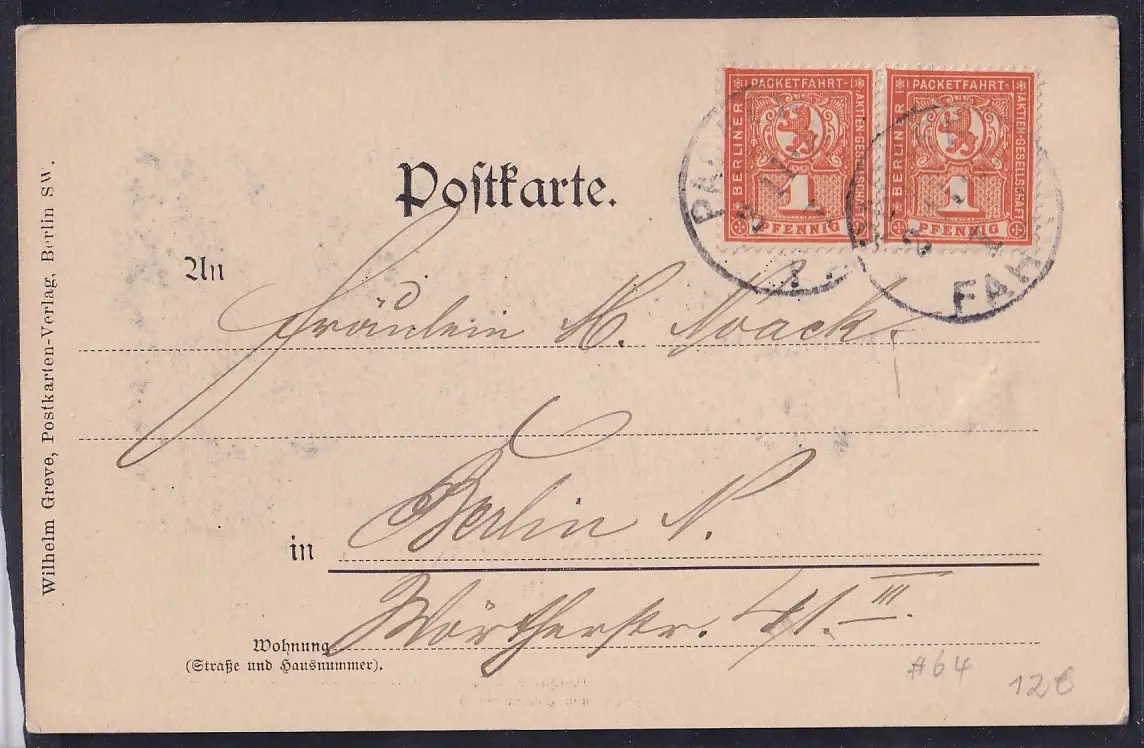 Wilhelm Greve, Postkarten-Verlag, Berlin SW.
Postkarte.
BERLINER PACKETFAHRT- AKTIEN-GESELLSCHAFT
1
PFENNIG
BERLINER PACKETFAHRT- AKTIEN-GESELLSCHAFT
1
PFENNIG
FAH
An
Fräulein H. Noack.
in
Berlin N.
Wörtherstr. 41. III.
Wohnung
(Straße und Hausnummer).
#64
12€